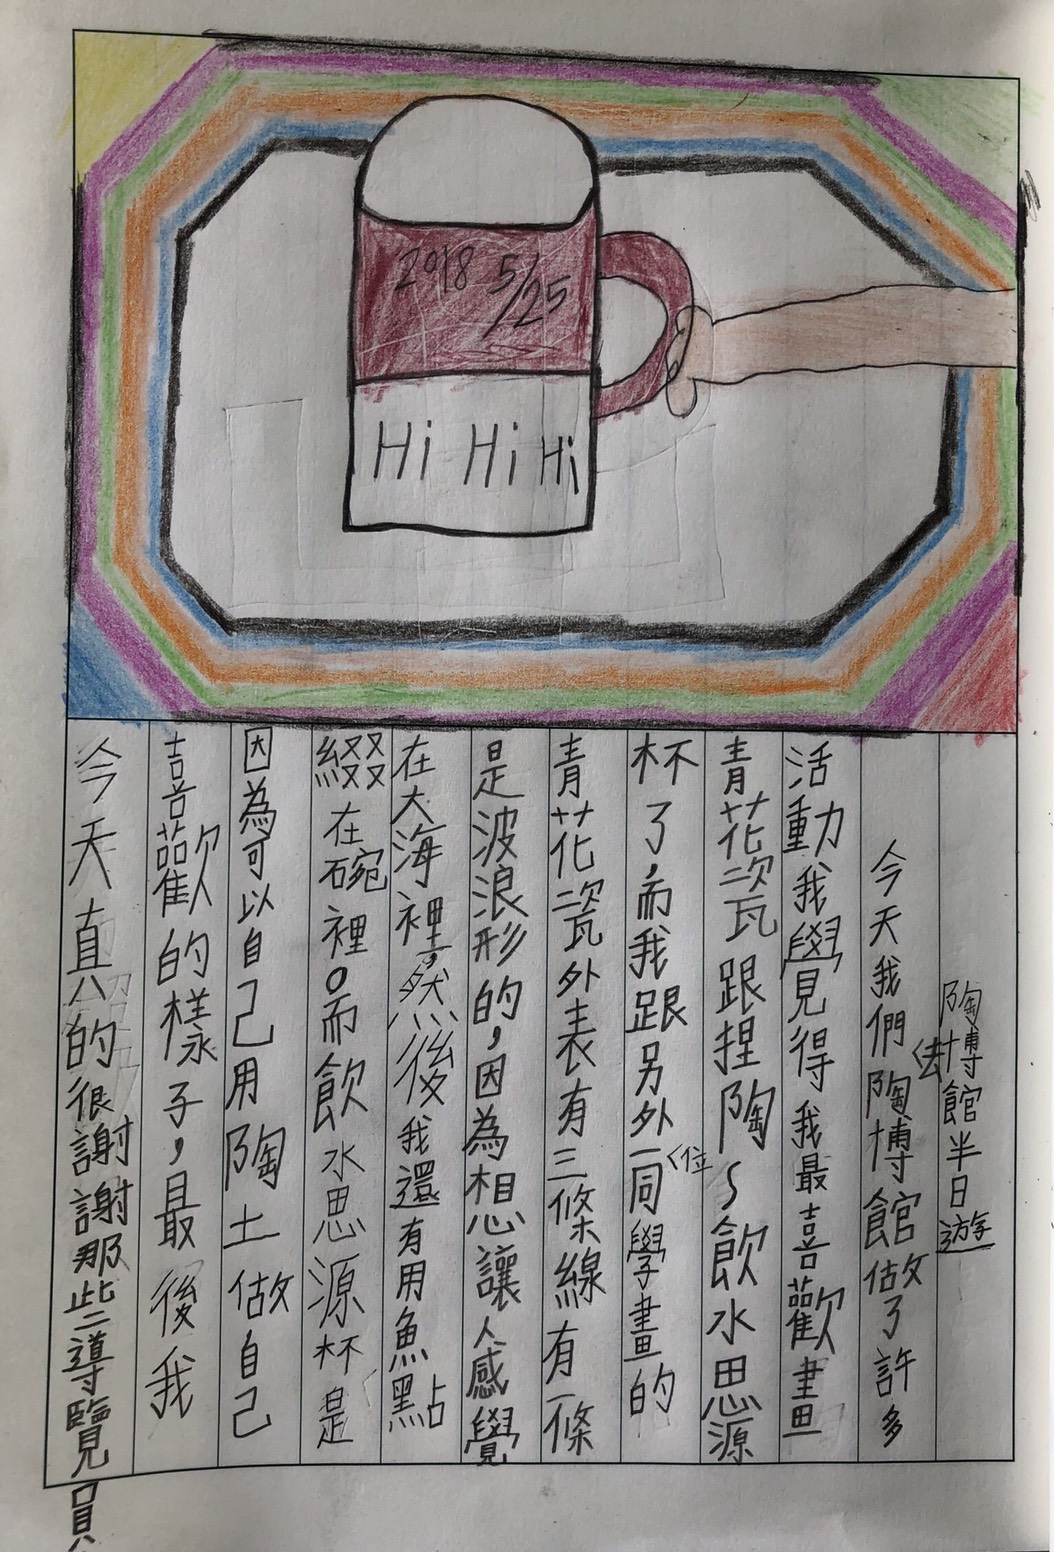 2018 5/25
Hi Hi Hi
陶博館半日遊
今天我們去陶博館做了許多
活動我覺得我最喜歡畫
青花瓷跟捏陶~飲水思源
杯了,而我跟另外一位同學畫的
青花瓷外表有三條線有一條
是波浪形的,因為想讓人感覺
在大海裡,然後我還有用魚點
綴在碗裡。而飲水思源杯是
因為可以自己用陶土做自己
喜歡的樣子,最後我
今天真的很謝謝那些導覽員